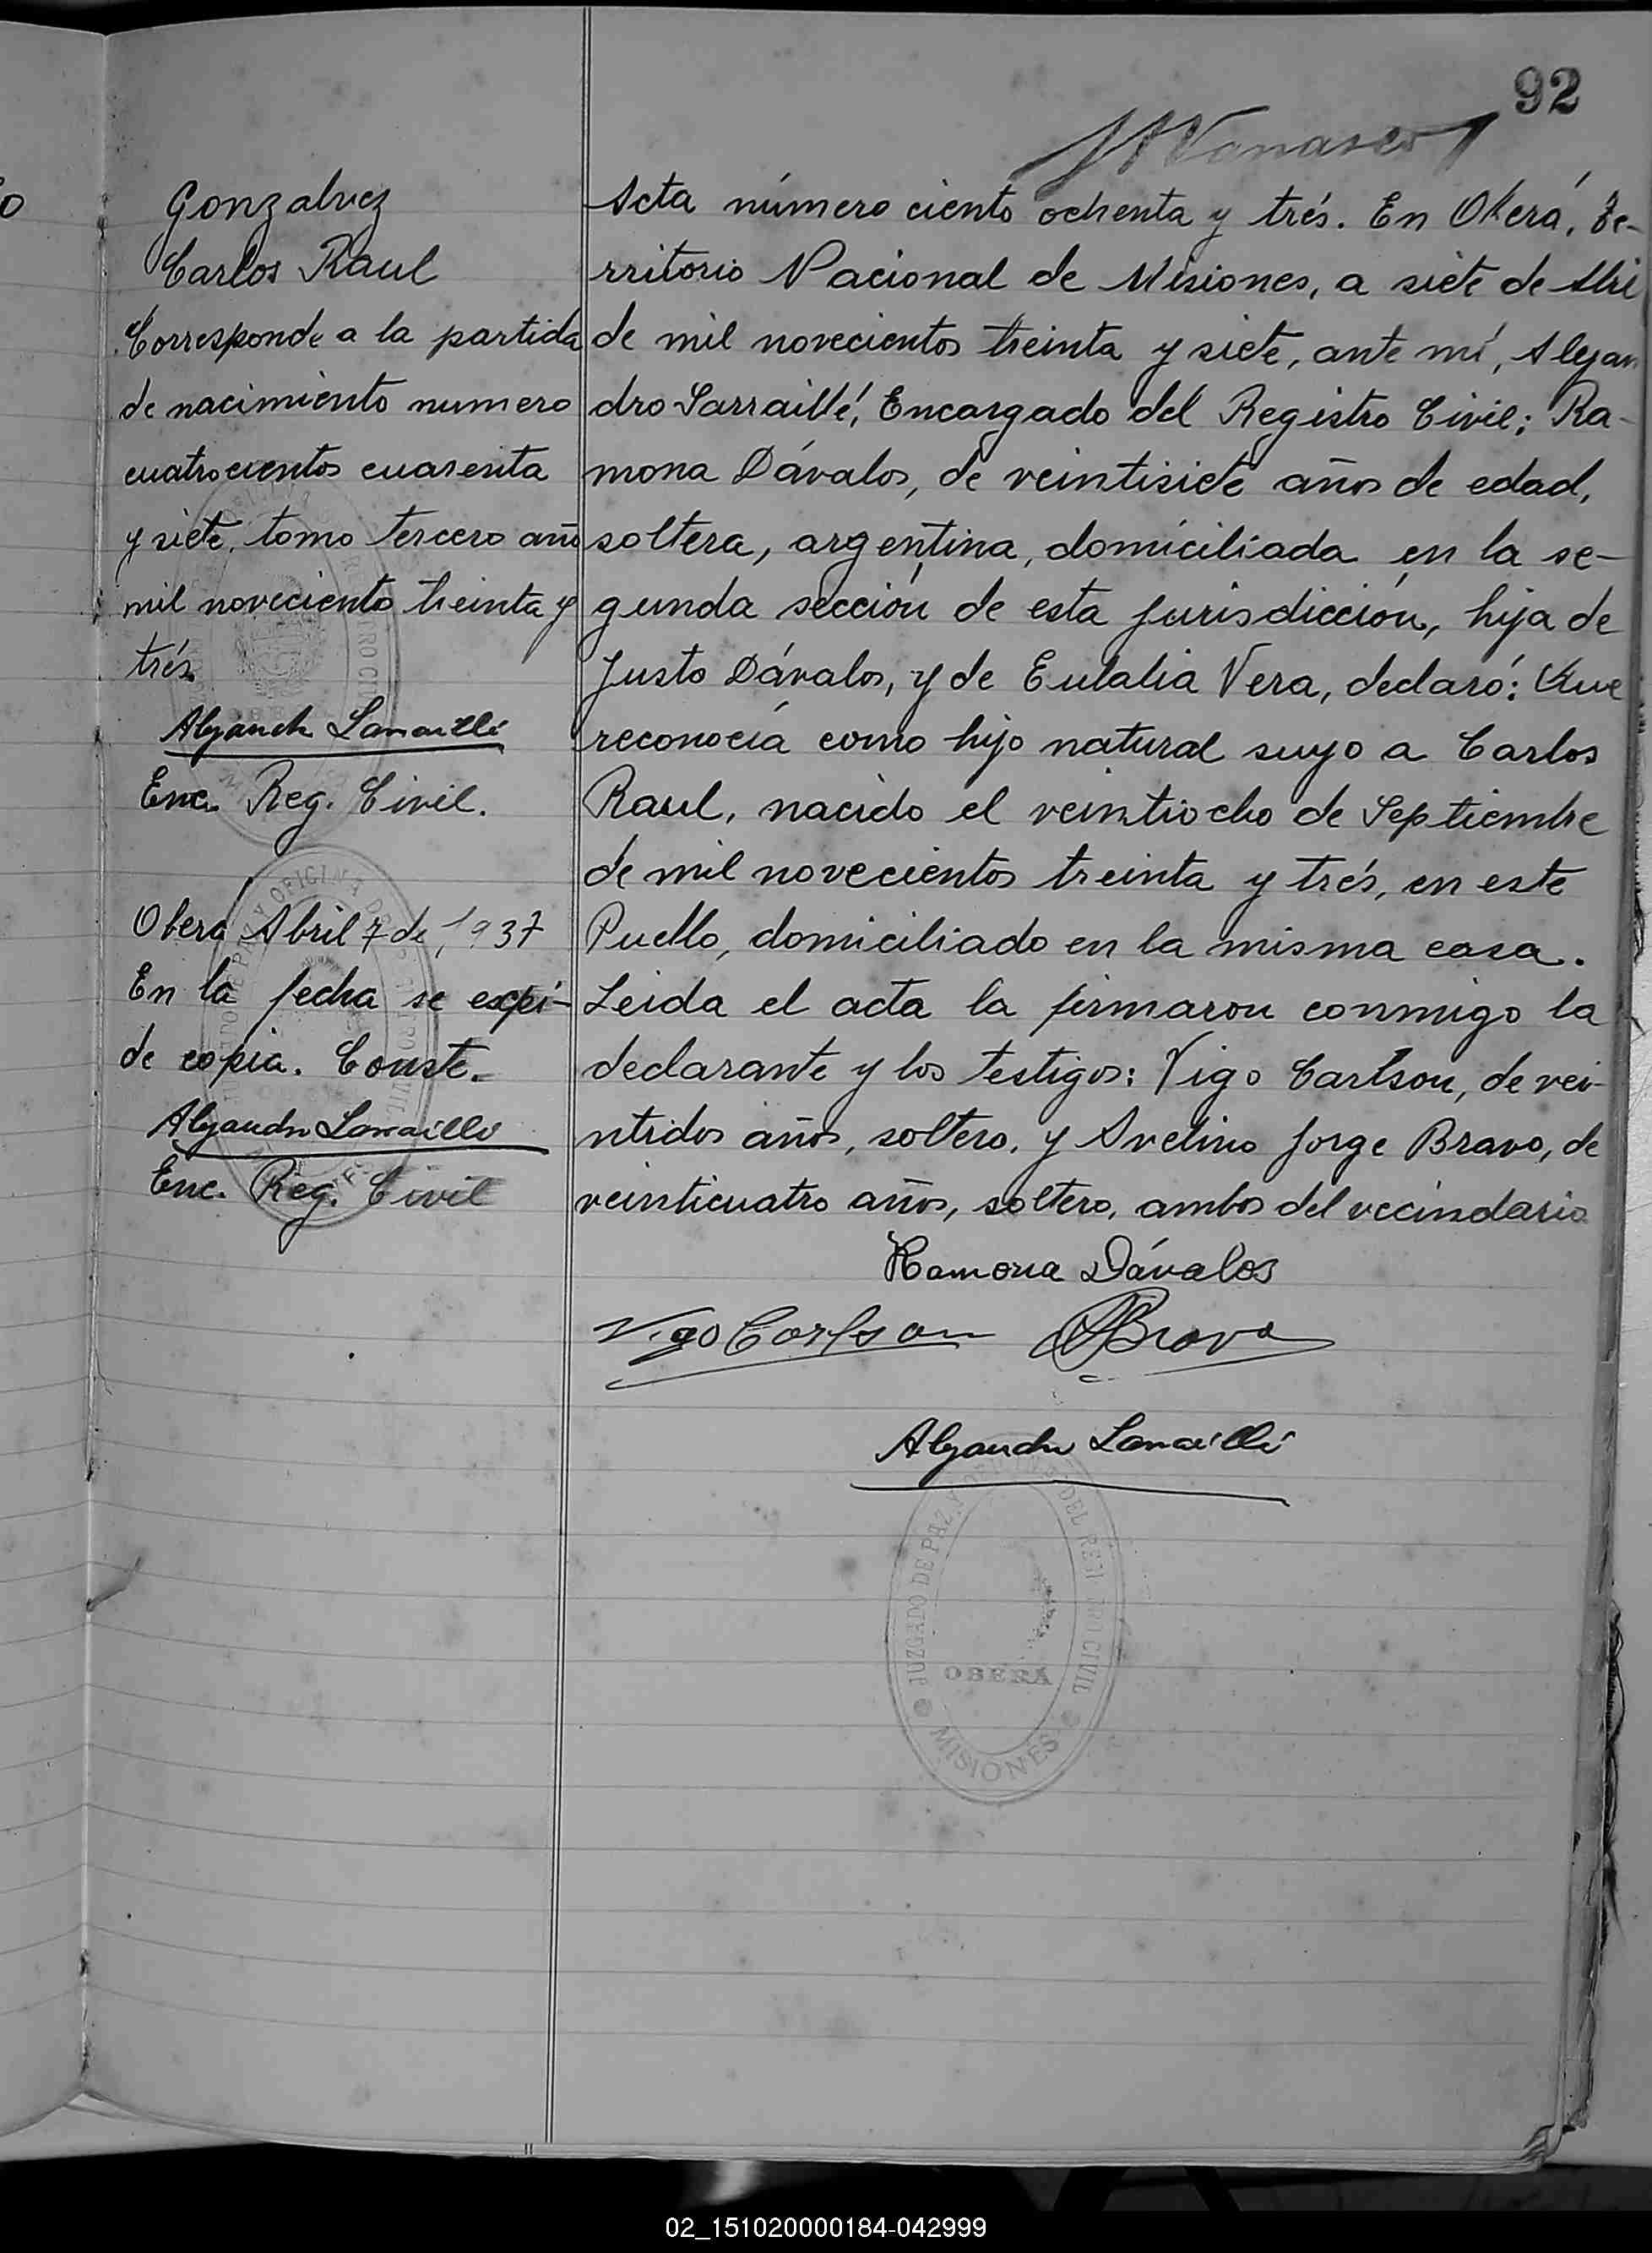 92
Gonzalvez
Carlos Raul
Corresponde a la partida
de nacimiento numero
cuatrocientos cuarenta
y siete, tomo tercero año
mil noveciento treinta y
trés.
Alejandro Sarraillé
Enc. Reg. Civil.
Oberá Abril 7 de 1937
En la fecha se expi-
de copia. Conste.
Alejandro Sarraillé
Enc. Reg. Civil
Acta número ciento ochenta y trés. En Oberá, Te-
rritorio Nacional de Misiones, a siete de Abril
de mil novecientos treinta y siete, ante mí, Alejan
dro Sarraillé, Encargado del Registro Civil; Ra-
mona Dávalos, de veintisiete años de edad,
soltera, argentina, domiciliada en la se-
gunda sección de esta jurisdicción, hija de
Justo Dávalos, y de Eulalia Vera, declaró: Que
reconocía como hijo natural suyo a Carlos
Raul, nacido el veintiocho de Septiembre
de mil novecientos treinta y trés, en este
Pueblo, domiciliado en la misma casa.
Leida el acta la firmaron conmigo la
declarante y los testigos: Vigo Carlson, de vei-
ntidos años, soltero, y Avelino Jorge Bravo, de
veinticuatro años, soltero, ambos del vecindario
Ramona Dávalos
Vigo Carlson ABravo
Alejandro Sarraillé
JUZGADO DE PAZ Y OFICINA DEL REGISTRO CIVIL
OBERÁ
MISIONES
02_151020000184-042999